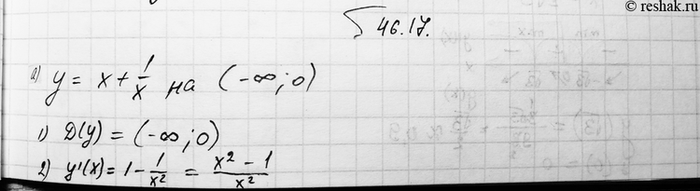 © reshak.ru
46.17.
a) y = x + 1/x на (-∞; 0)
1) D(y) = (-∞; 0)
2) y'(x) = 1 - 1/x² = (x² - 1)/x²